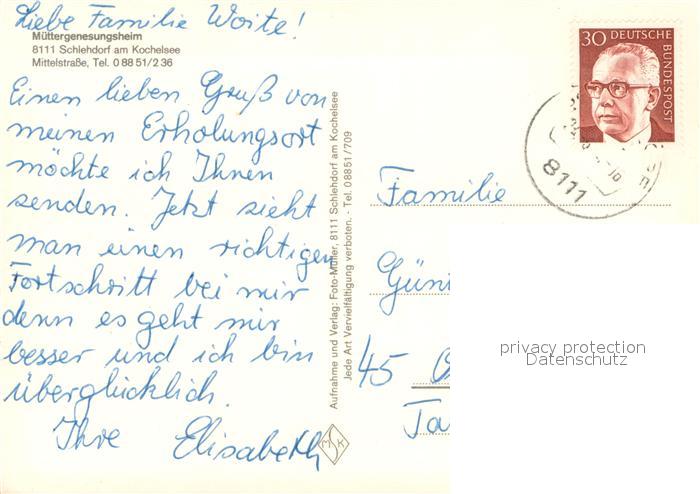 Liebe Familie Woite!
Müttergenesungsheim
8111 Schlehdorf am Kochelsee
Mittelstraße, Tel. 0 88 51/2 36
Einen lieben Gruß von
meinen Erholungsort
möchte ich Ihnen
senden. Jetzt sieht
man einen richtigen
Fortschritt bei mir
denn es geht mir
besser und ich bin
überglücklich.
Ihre Elisabeth
Aufnahme und Verlag: Foto-Müller, 8111 Schlehdorf am Kochelsee
Jede Art Vervielfältigung verboten. - Tel. 08851/709
MSK
30 DEUTSCHE
BUNDESPOST
8111
Familie
Gün
45
Ta
privacy protection
Datenschutz